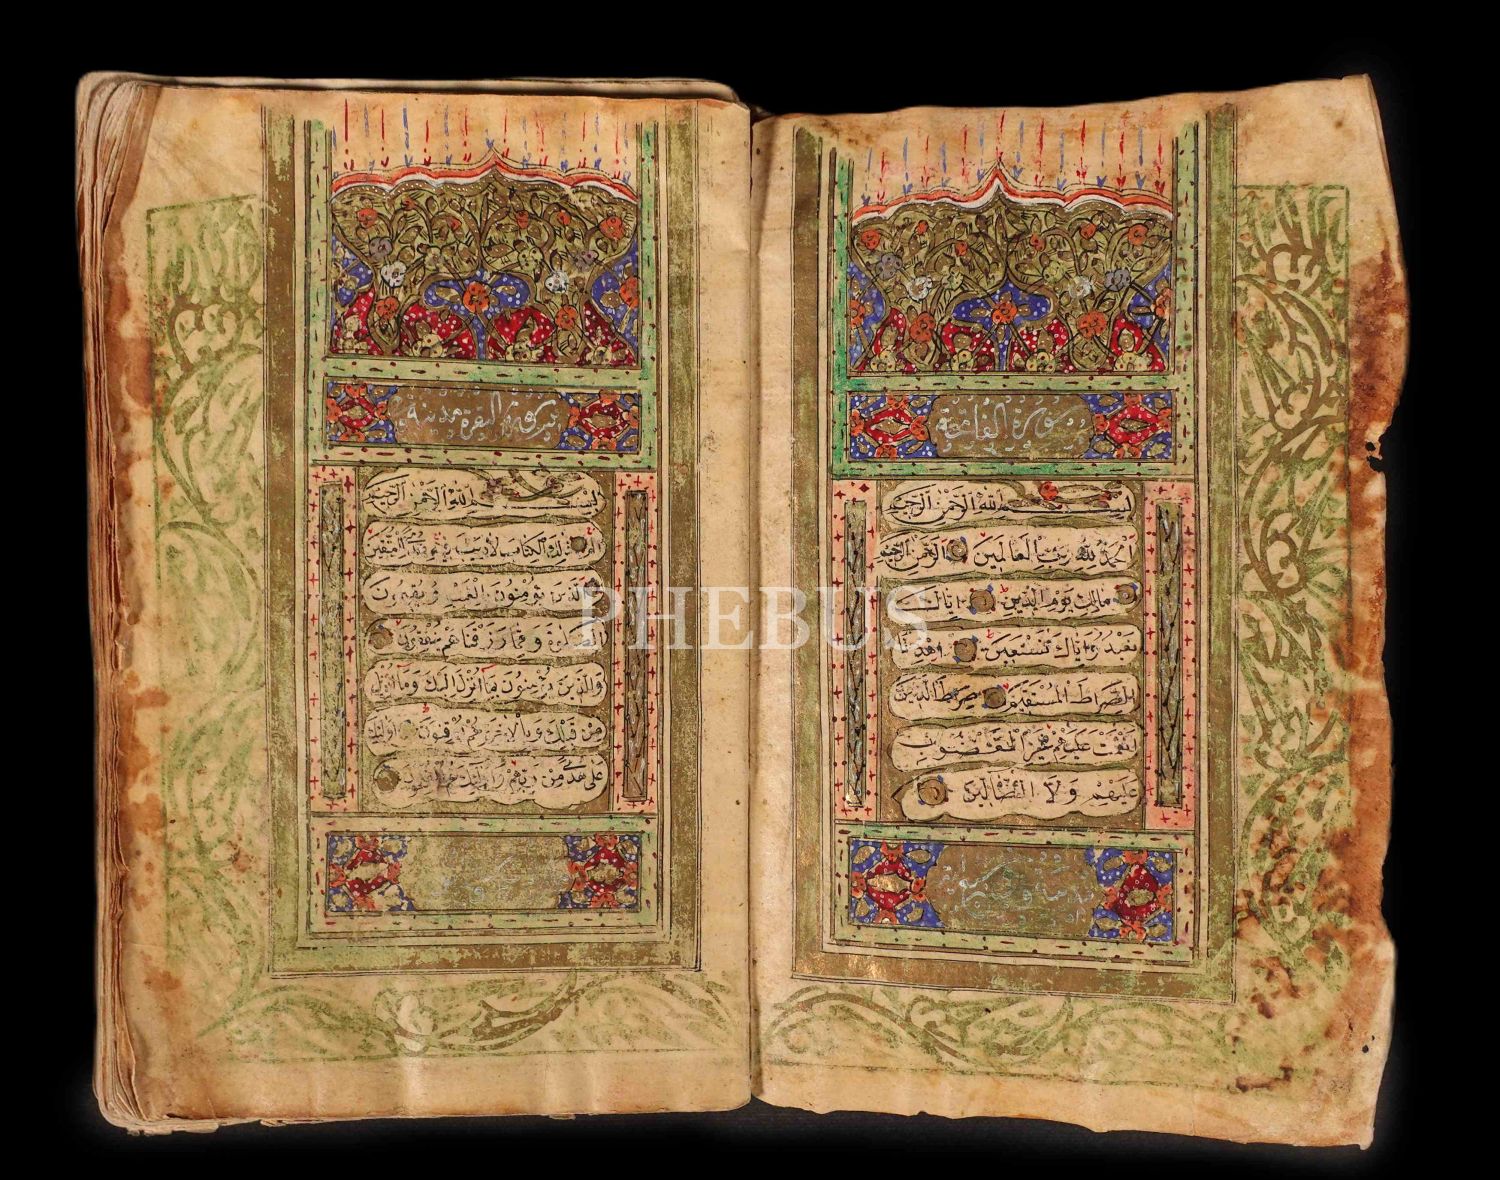 سورة الفاتحة
بسم الله الرحمن الرحيم
الحمد لله رب العالمين الرحمن الرحيم
مالك يوم الدين اياك
نعبد واياك نستعين اهدنا
الصراط المستقيم صراط الذين
انعمت عليهم غير المغضوب
عليهم ولا الضالين
سورة البقرة مدينة
بسم الله الرحمن الرحيم
الم ذلك الكتاب لا ريب فيه هدى للمتقين
الذين يؤمنون بالغيب ويقيمون
الصلوة ومما رزقناهم ينفقون
والذين يؤمنون بما انزل اليك وما انزل
من قبلك وبالاخرة هم يوقنون اولئك
على هدى من ربهم واولئك هم المفلحون
PHEBUS